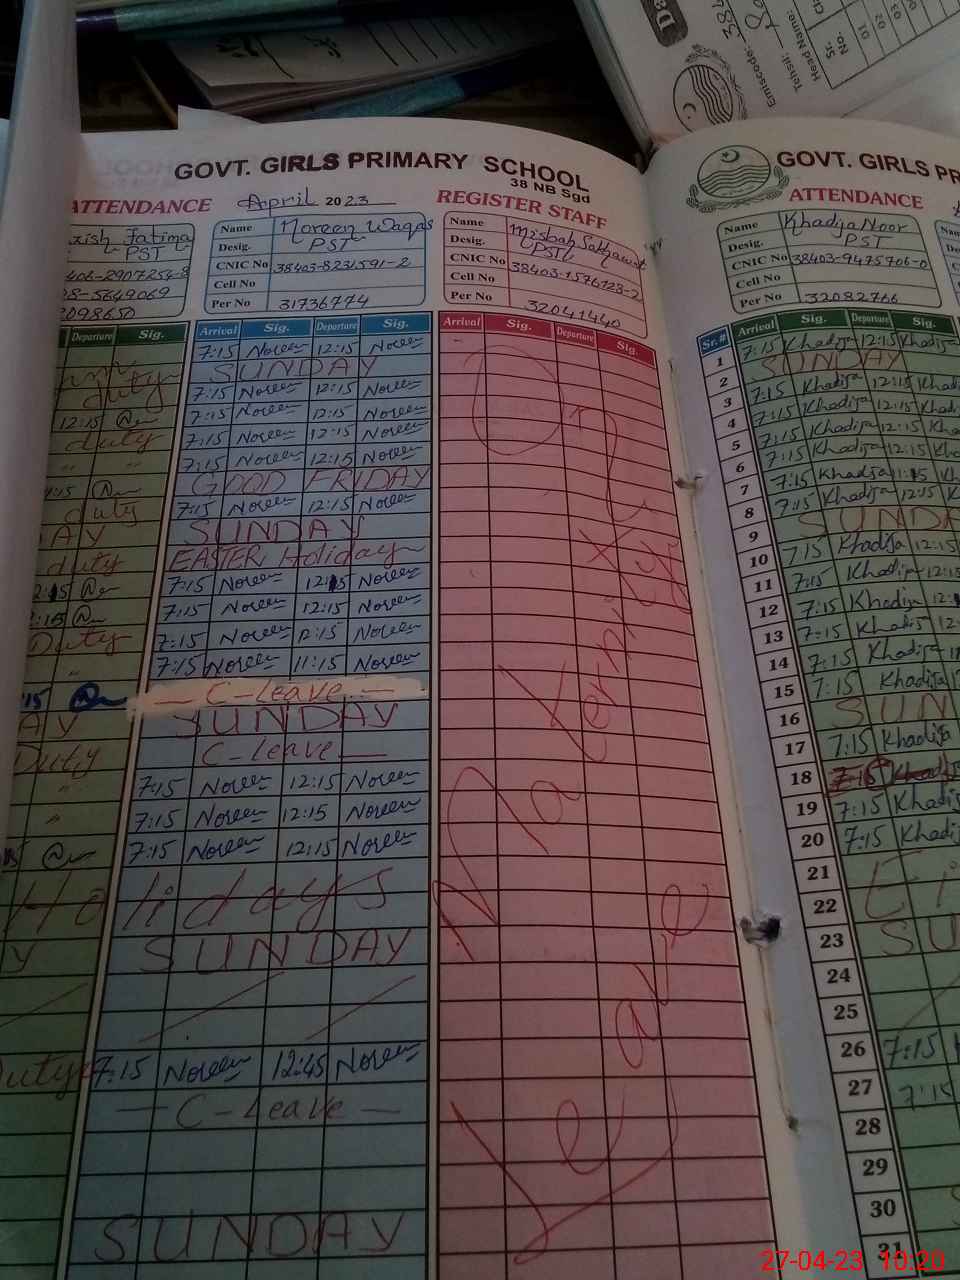 Da
Emiscode: 384
Tehsil:
Head Name:
Sr. No.
01
02
03
GOVT. GIRLS PRIMARY SCHOOL
38 NB Sgd
ATTENDANCE April 2023 REGISTER STAFF
Fatima
PST
2907254-8
5649069
Departure Sig.
Name Noreen Waqas
Desig. PST
CNIC No 38403-8231591-2
Cell No
Per No 31736774
Arrival Sig. Departure Sig.
7:15 Noreen 12:15 Noreen
SUNDAY
7:15 Noreen 12:15 Noreen
7:15 Noreen 12:15 Noreen
7:15 Noreen 12:15 Noreen
7:15 Noreen 12:15 Noreen
GOOD FRIDAY
7:15 Noreen 12:15 Noreen
SUNDAY
EASTER Holiday
7:15 Noreen 12:15 Noreen
7:15 Noreen 12:15 Noreen
7:15 Noreen 12:15 Noreen
7:15 Noreen 11:15 Noreen
— C-Leave —
SUNDAY
C-Leave —
7:15 Noreen 12:15 Noreen
7:15 Noreen 12:15 Noreen
7:15 Noreen 12:15 Noreen
Holidays
SUNDAY
7:15 Noreen 12:45 Noreen
— C-Leave —
SUNDAY
duty
12:15
duty
duty
duty
Duty
Duty
Duty
Name Misbah Sakhawat
Desig. PST
CNIC No 38403-1576723-2
Cell No
Per No 32041440
Arrival Sig. Departure Sig.
Maternity
Leave
GOVT. GIRLS PR
ATTENDANCE
Name Khadija Noor
Desig. PST
CNIC No 38403-9475706-0
Cell No
Per No 32082766
Sr.# Arrival Sig. Departure Sig.
1 7:15 Khadija 12:15 Khadija
2 SUNDAY
3 7:15 Khadija 12:15 Khadi
4 7:15 Khadija 12:15 Khad
5 7:15 Khadija 12:15 Kha
6 7:15 Khadija 12:15 Kh
7 7:15 Khadija 11:15 Kh
8 7:15 Khadija 12:15 K
9 SUNDA
10 7:15 Khadija 12:15
11 7:15 Khadija 12:15
12 7:15 Khadija 12:
13 7:15 Khadija 12:
14 7:15 Khadija
15 7:15 Khadija
16 SUN
17 7:15 Khadija
18 7:15 Khadi
19 7:15 Khadi
20 7:15 Khadi
21 Ei
22
23 SU
24
25
26 7:15
27 7:15
28
29
30
31
27-04-23 10:20